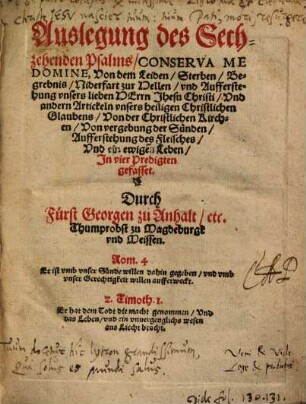 Auslegung des Sech-
zehenden Psalms/ CONSERVA ME
DOMINE, Von dem Leiden/ Sterben/ Be-
grebnis/ Niderfart zur Hellen/ vnd Aufferste-
hung vnsers lieben HErrn Jhesu Christi/ Vnd
andern Artickeln vnsers heiligen Christlichen
Glaubens/ Von der Christlichen Kirch-
en/ Von vergebung der Sünden/
Aufferstehung des Fleisches/
Vnd ein ewigen Leben/
In vier Predigten
gefasset.
Durch
Fürst Georgen zu Anhalt/ etc.
Thumprobst zu Magdeburgk
vnd Meissen.
Rom. 4
Er ist vmb vnser Sünde willen dahin gegeben/ vnd vmb
vnser Gerechtigkeit willen aufferweckt.
2. Timoth. 1.
Er hat dem Tode die macht genommen/ Vnd
das Leben/ vnd ein vnuergenglichs wesen
ans Liecht bracht.
Veni & Vide
Vide fol. 130. 131.